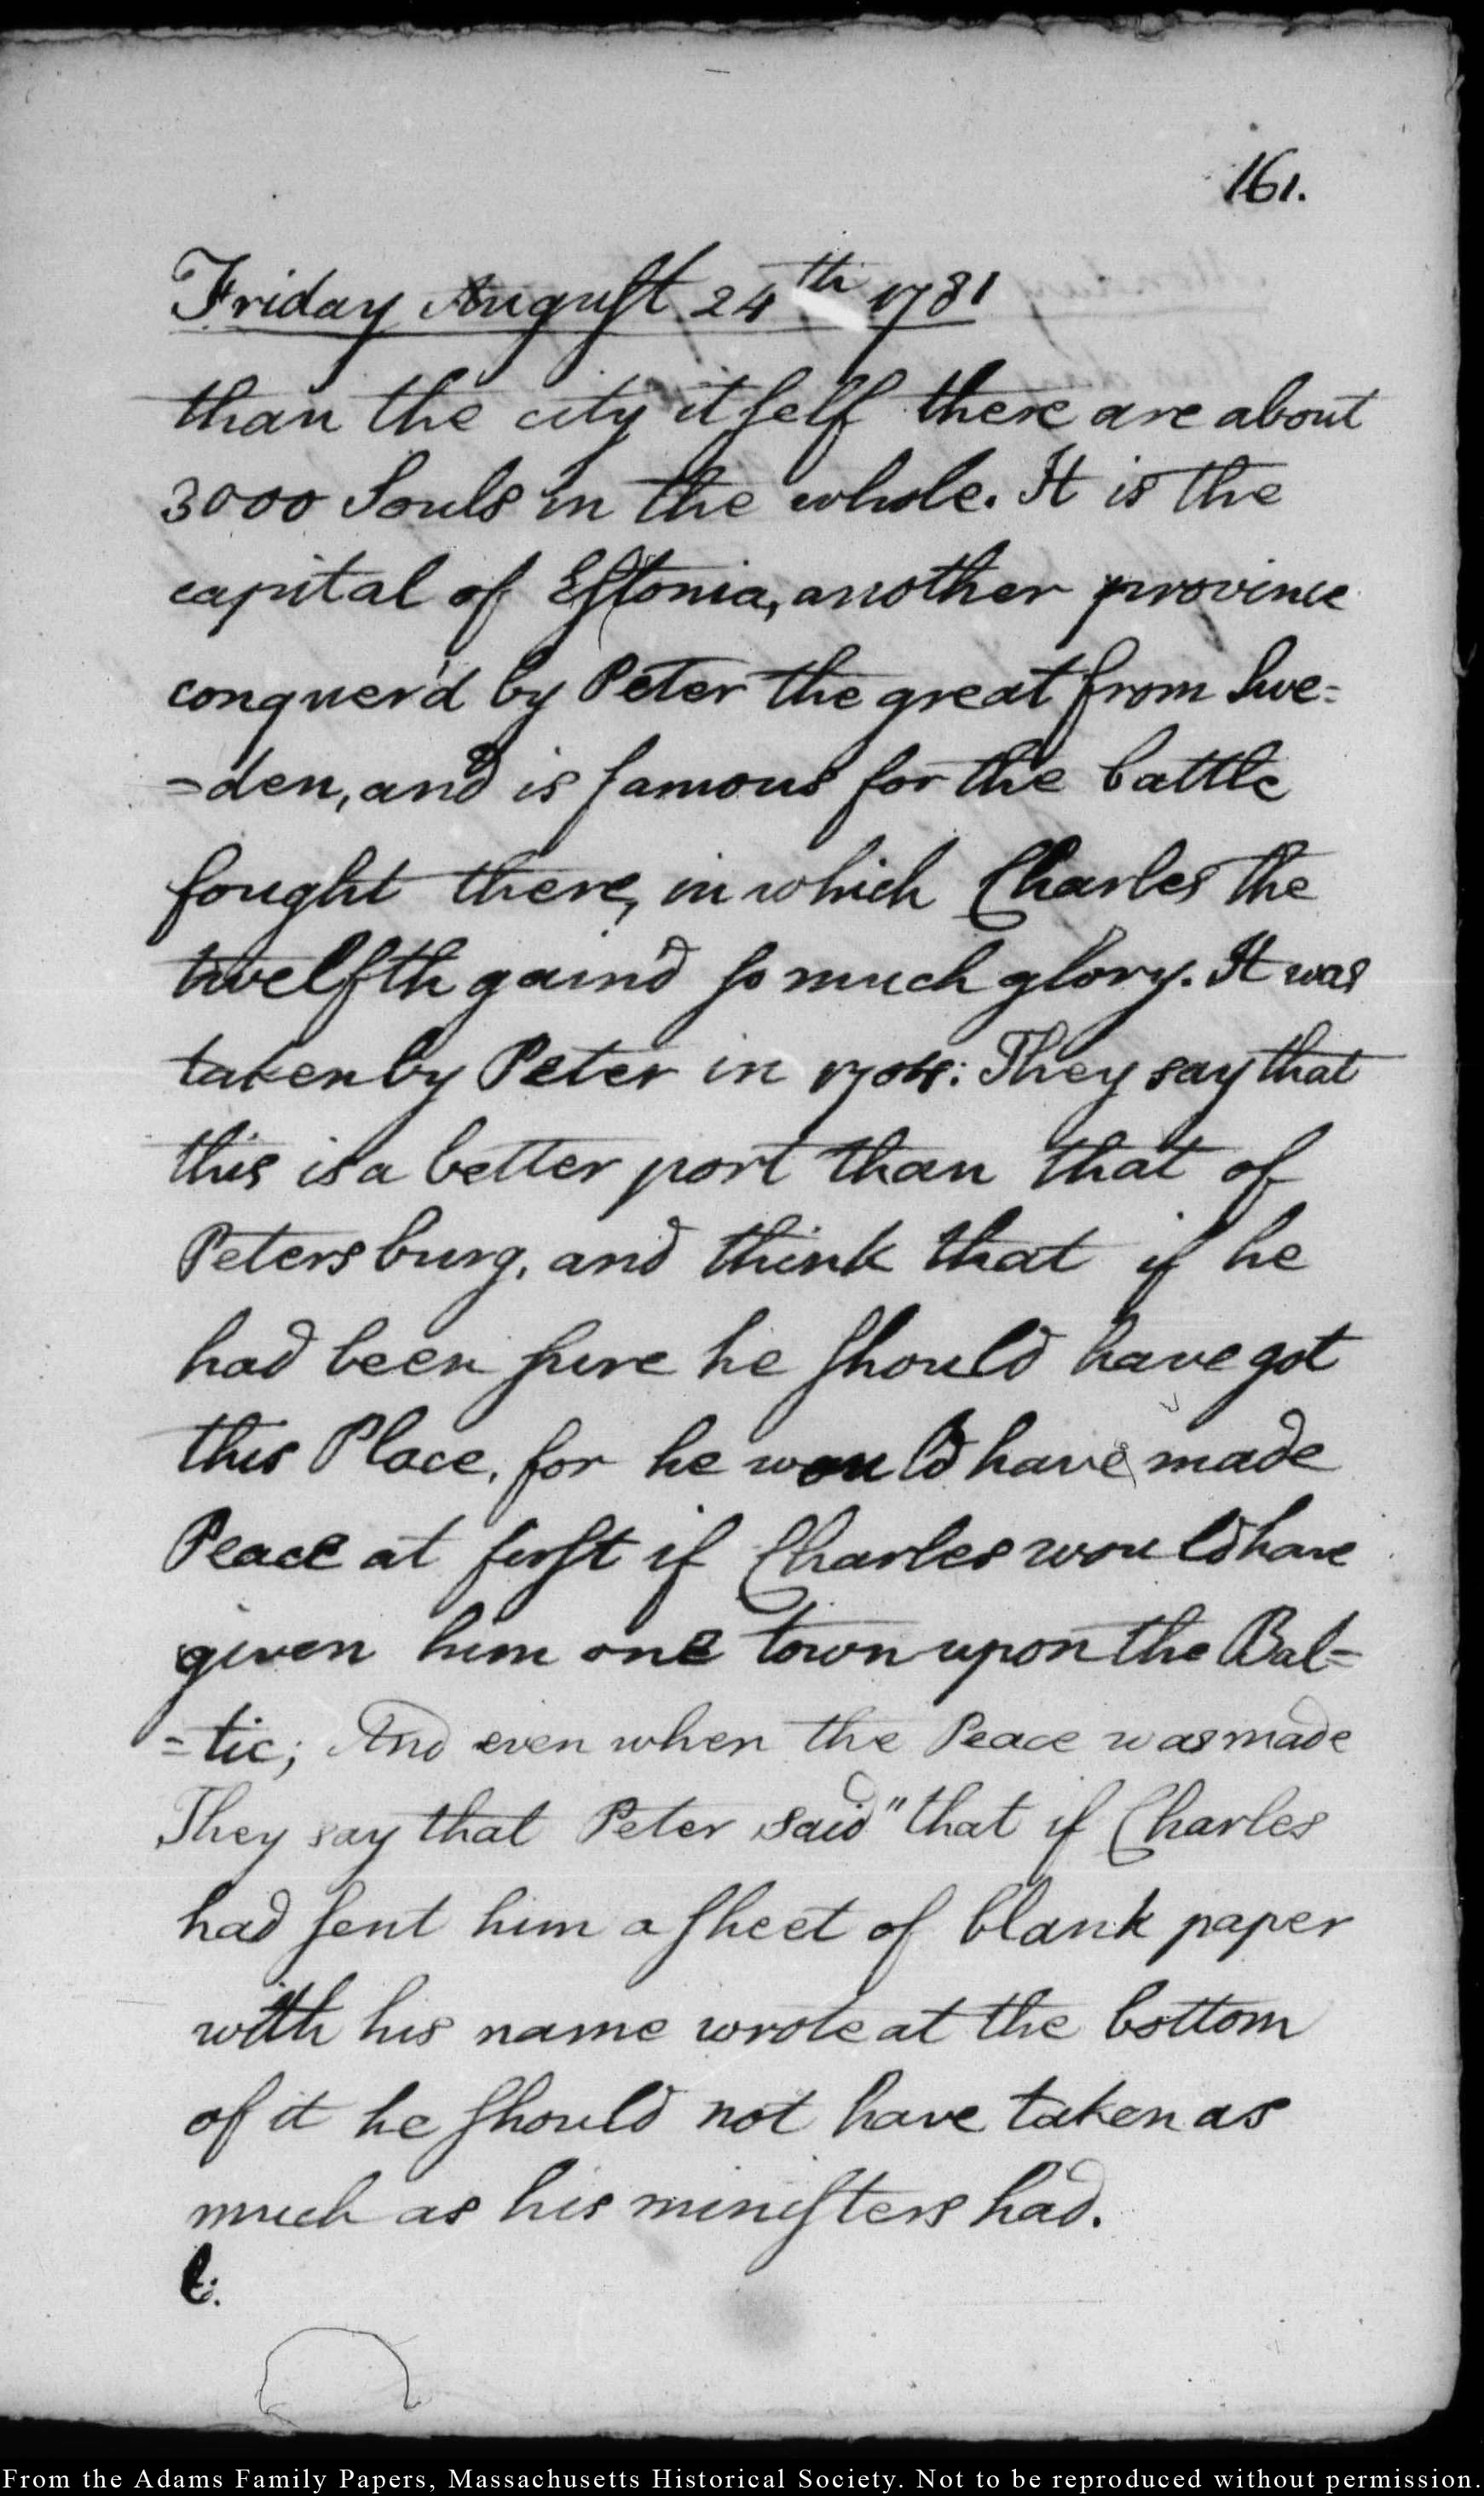 161.
Friday Auguſt 24th 1781
than the city itſelf there are about
3000 Souls in the whole. It is the
capital of Eſtonia, another province
conquer'd by Peter the great from Swe=
=den, and is famous for the battle
fought there, in which Charles the
twelfth gain'd ſo much glory. It was
taken by Peter in 1704: They say that
this is a better port than that of
Petersburg, and think that if he
had been ſure he ſhould have got
this Place, for he would have made
Peace at firſt if Charles would have
given him one town upon the Bal=
=tic; And even when the Peace was made
They say that Peter said "that if Charles
had ſent him a ſheet of blank paper
with his name wrote at the bottom
of it he ſhould not have taken as
much as his miniſters had.
From the Adams Family Papers, Massachusetts Historical Society. Not to be reproduced without permission.